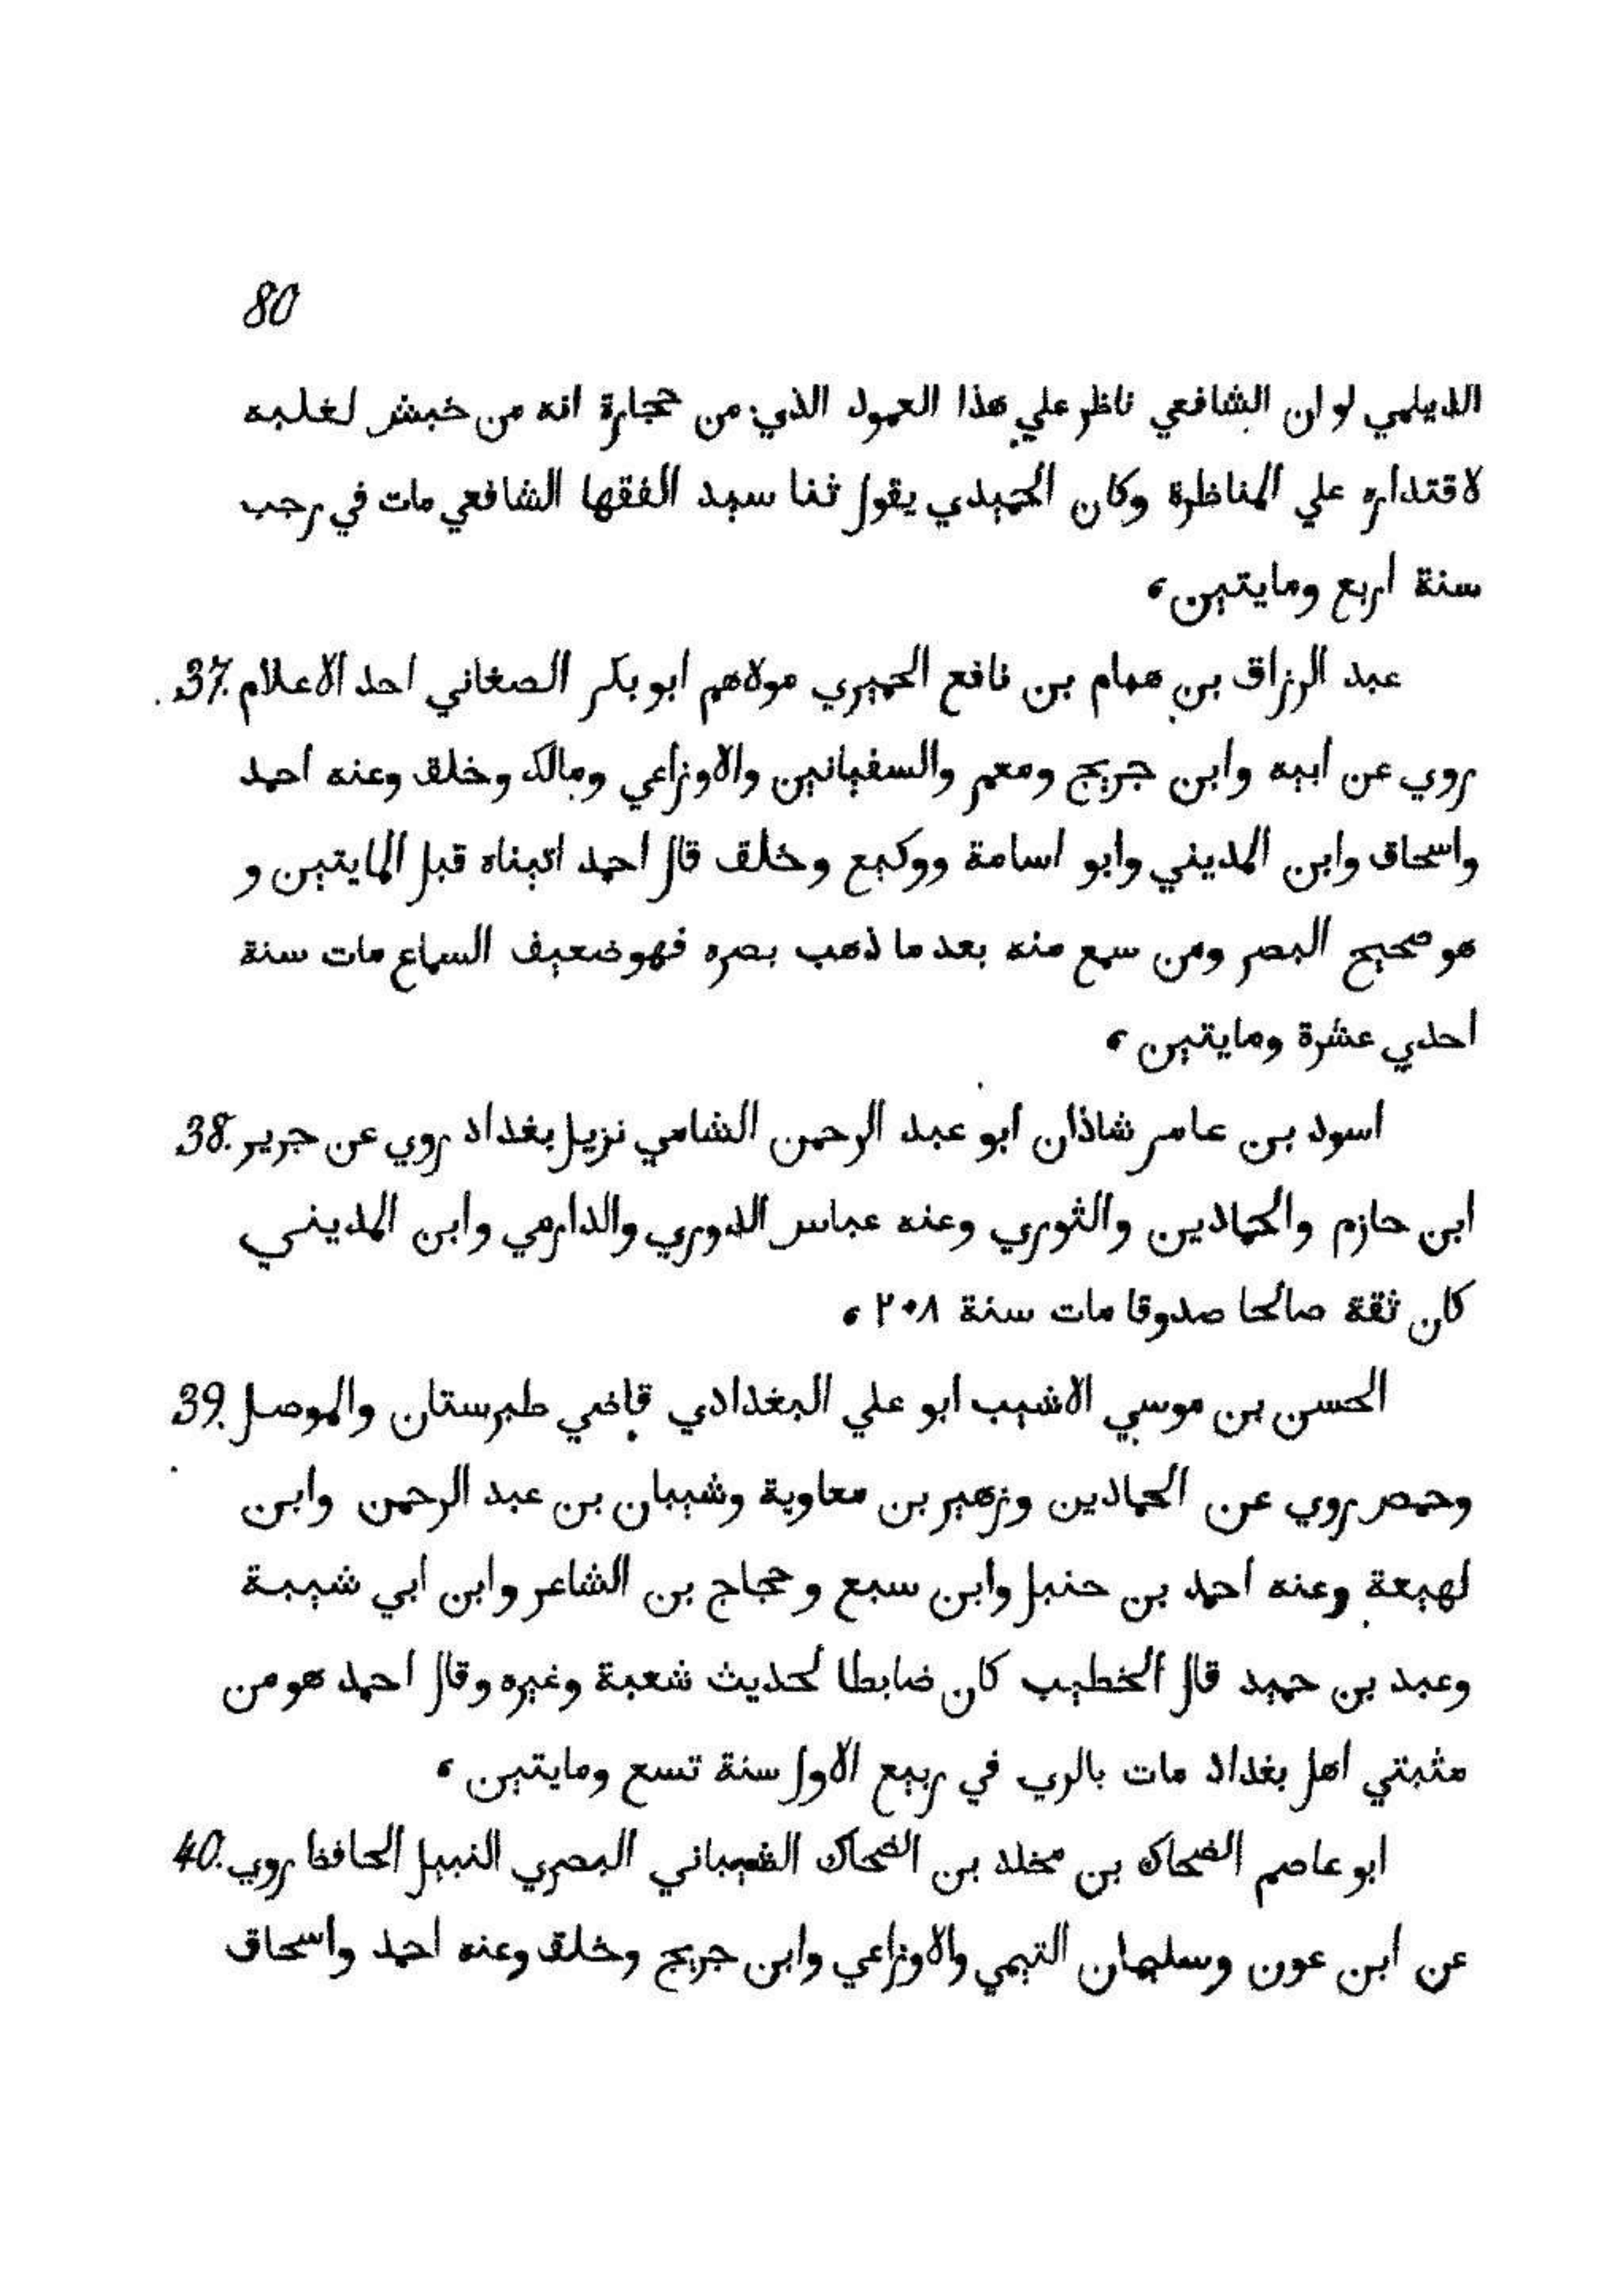 80
الديلمي لو ان الشافعي ناظر علي هذا العمود الذي من حجارة انه من خبش لغلبه
لاقتداره علي المناظرة وكان الحميدي يقول ثنا سيد الفقها الشافعي مات في رجب
سنة اربع ومايتين ،
عبد الرزاق بن همام بن نافع الحميري مولاهم ابو بكر الصغاني احد الاعلام .37
روي عن ابيه وابن جريج ومعمر والسفيانين والاوزاعي ومالك وخلق وعنه احمد
واسحاق وابن المديني وابو اسامة ووكيع وخلق قال احمد اتيناه قبل المايتين و
هو صحيح البصر ومن سمع منه بعد ما ذهب بصره فهو ضعيف السماع مات سنة
احدي عشرة ومايتين ،
اسود بن عامر شاذان ابو عبد الرحمن الشامي نزيل بغداد روي عن جرير .38
ابن حازم والحمادين والثوري وعنه عباس الدوري والدارمي وابن المديني
كان ثقة صالحا صدوقا مات سنة ٢٠٨ ،
الحسن بن موسي الاشيب ابو علي البغدادي قاضي طبرستان والموصل .39
وحمص روي عن الحمادين وزهير بن معاوية وشيبان بن عبد الرحمن وابن
لهيعة وعنه احمد بن حنبل وابن سبع وحجاج بن الشاعر وابن ابي شيبة
وعبد بن حميد قال الخطيب كان ضابطا لحديث شعبة وغيره وقال احمد هو من
مثبتي اهل بغداد مات بالري في ربيع الاول سنة تسع ومايتين ،
ابو عاصم الضحاك بن مخلد بن الضحاك الشيباني البصري النبيل الحافظ روي .40
عن ابن عون وسليمان التيمي والاوزاعي وابن جريج وخلق وعنه احمد واسحاق